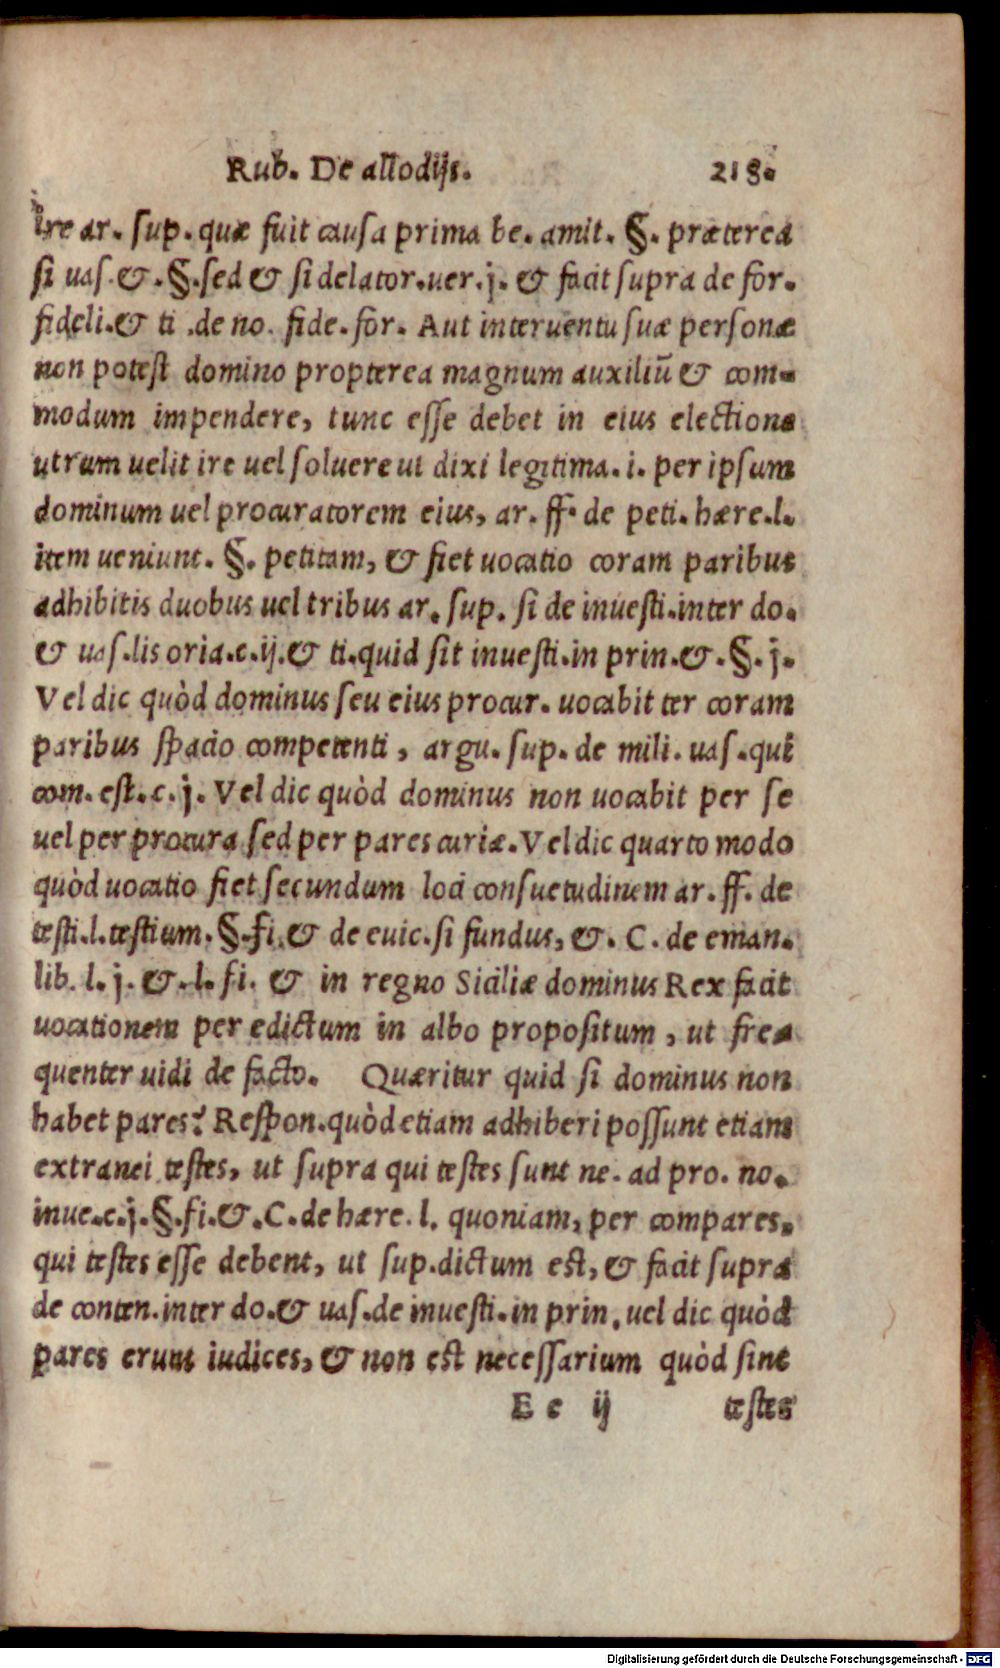 Rub. De allodijs. 218.
ire ar. sup. quæ fuit causa prima be. amit. §. præterea
si uas. & .§. sed & si delator. uer. j. & facit supra de for.
fideli. & ti .de no. fide. for. Aut interuentu suæ personæ
non potest domino propterea magnum auxiliũ & com-
modum impendere, tunc esse debet in eius electione
utrum uelit ire uel soluere ut dixi legitima. i. per ipsum
dominum uel procuratorem eius, ar. ff. de peti. hære. l.
item ueniunt. §. petitam, & fiet uocatio coram paribus
adhibitis duobus uel tribus ar. sup. si de inuesti. inter do.
& uas. lis oria. c. ij. & ti. quid sit inuesti. in prin. &. §. j.
Vel dic quòd dominus seu eius procur. uocabit ter coram
paribus spacio competenti, argu. sup. de mili. uas. qui
com. est. c. j. Vel dic quòd dominus non uocabit per se
uel per procura sed per pares curiæ. Vel dic quarto modo
quòd uocatio fiet secundum loci consuetudinem ar. ff. de
testi. l. testium. §. fi. & de euic. si fundus, &. C. de eman.
lib. l. j. &. l. fi. & in regno Siciliæ dominus Rex facit
uocationem per edictum in albo propositum, ut fre-
quenter uidi de facto. Quæritur quid si dominus non
habet pares? Respon. quòd etiam adhiberi possunt etiam
extranei testes, ut supra qui testes sunt ne. ad pro. no.
inue. c. j. §. fi. &. C. de hære. l. quoniam, per compares.
qui testes esse debent, ut sup. dictum est, & facit supra
de conten. inter do. & uas. de inuesti. in prin. uel dic quòd
pares erunt iudices, & non est necessarium quòd sint
E e ij testes
Digitalisierung gefördert durch die Deutsche Forschungsgemeinschaft - DFG